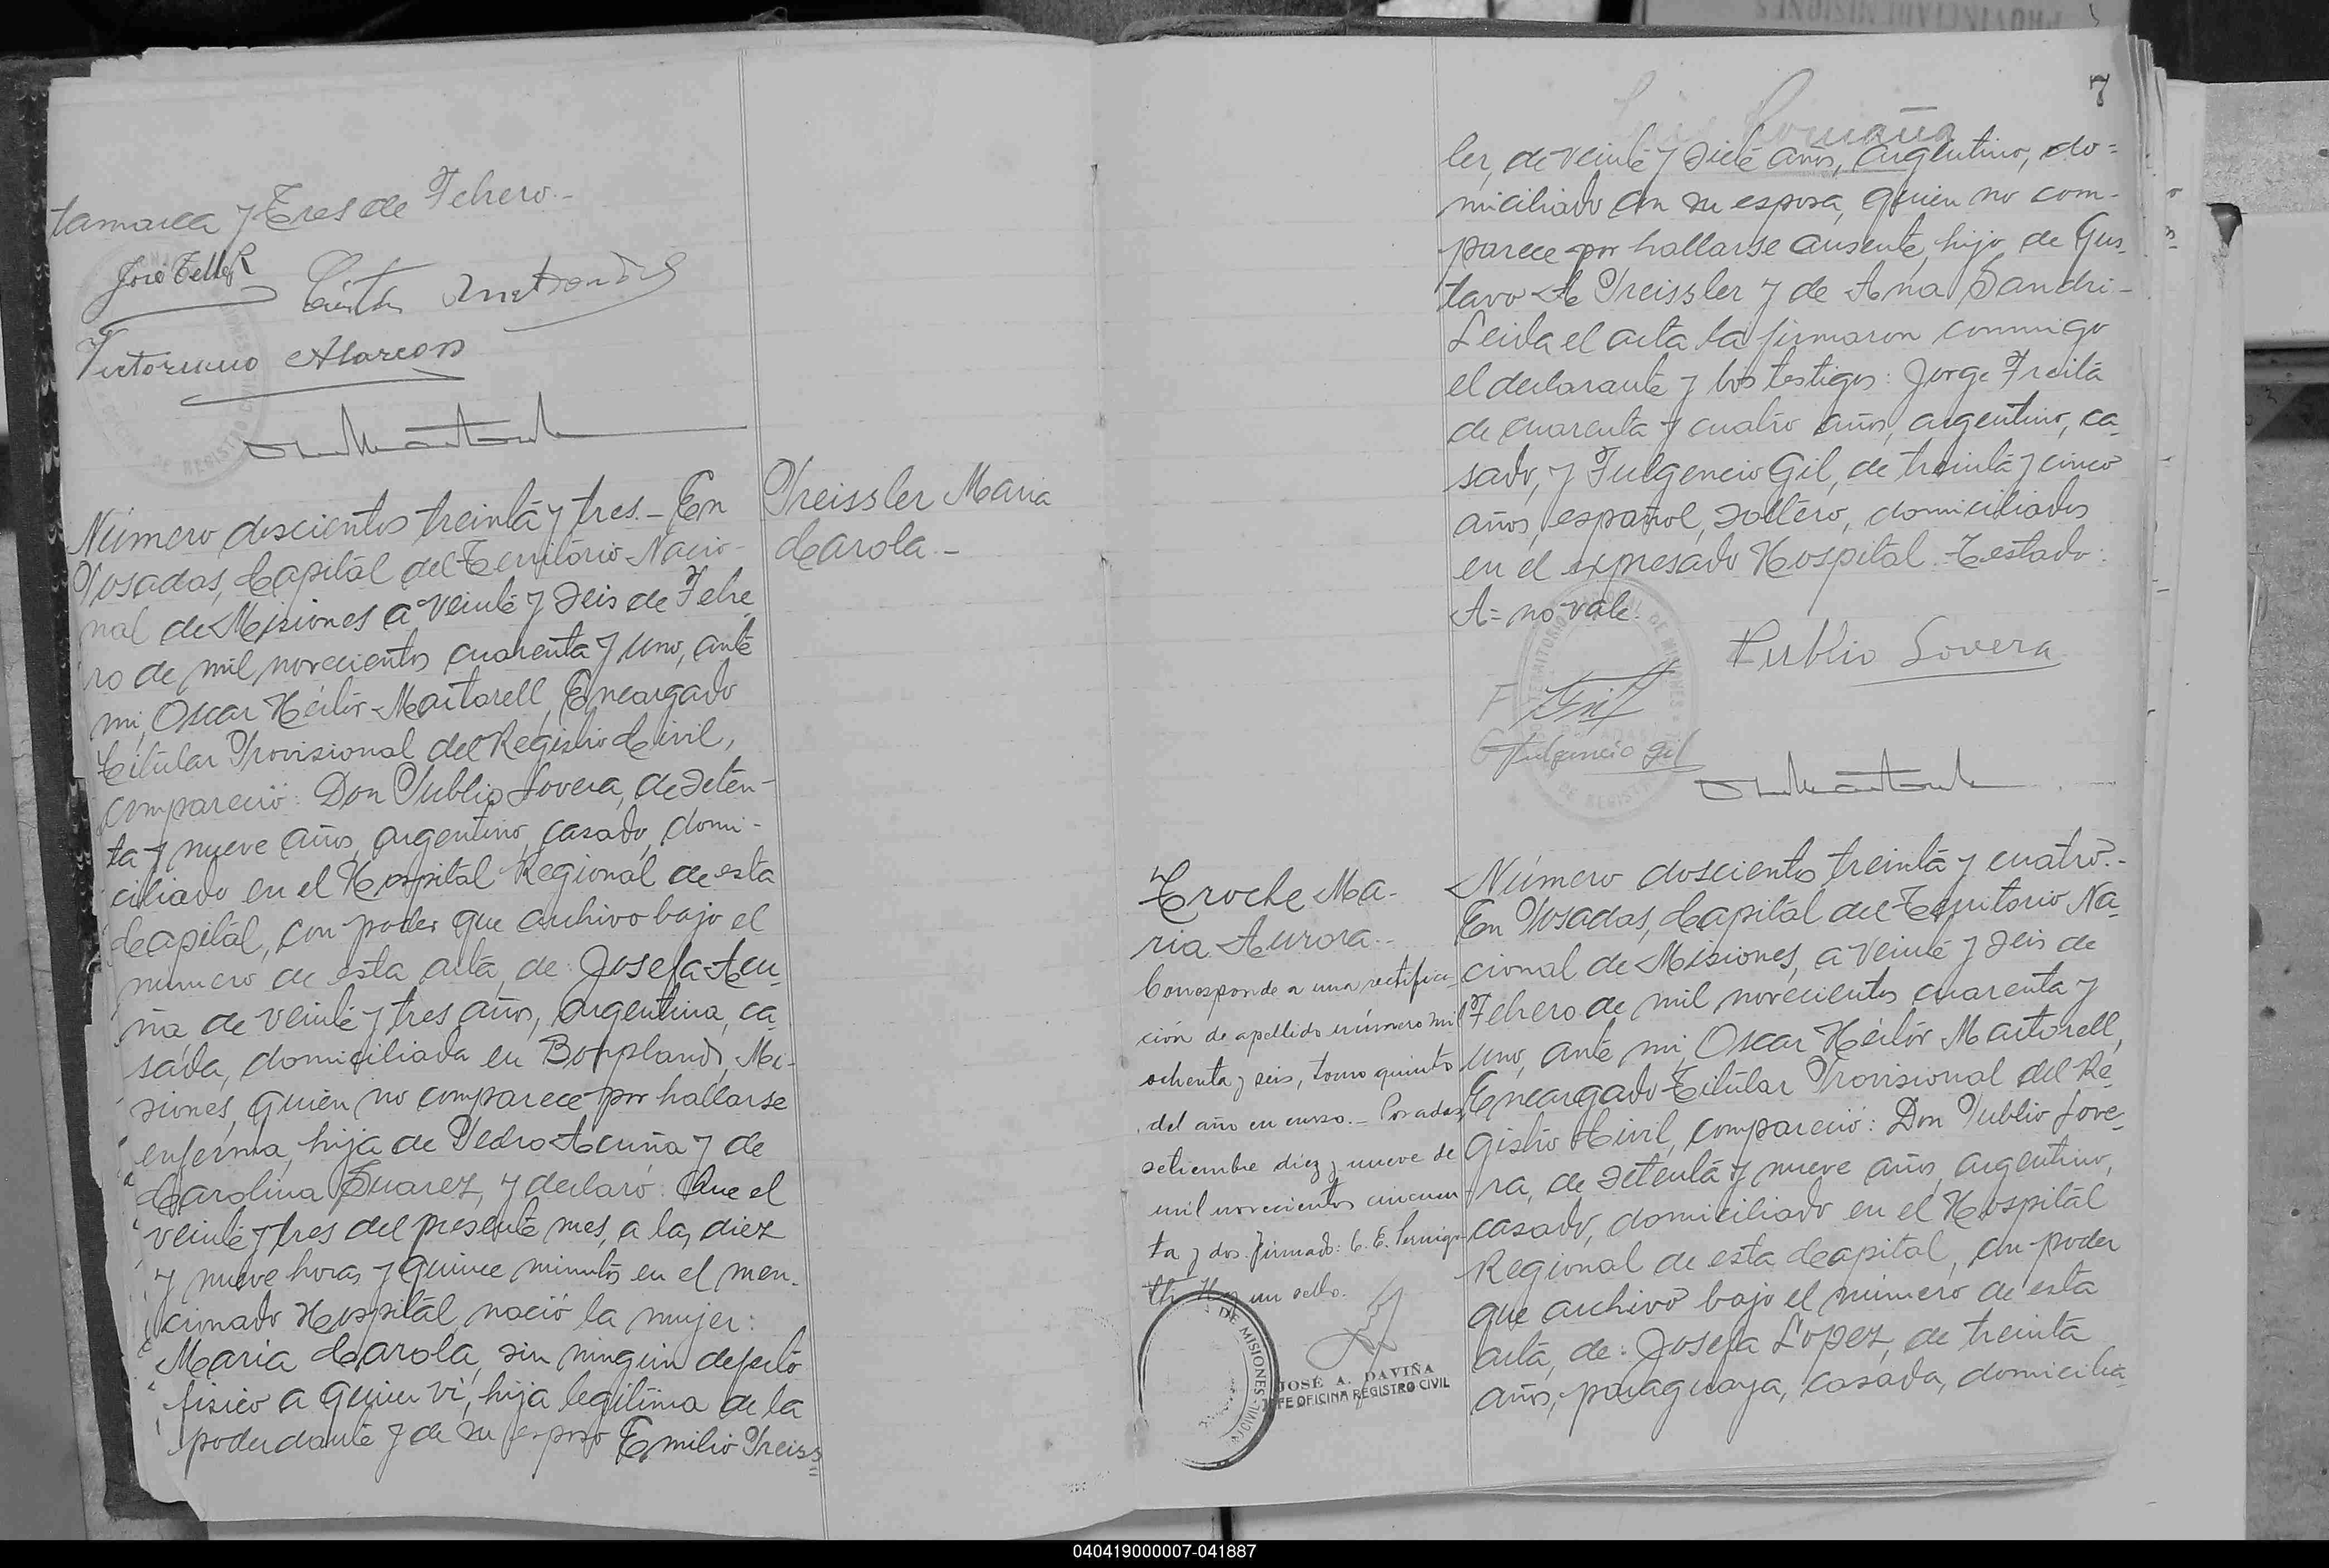 tamarca y Tres de Febrero.-
José Teller
Victoriano Alarcon
Número doscientos treinta y tres.- En
Posadas, Capital del Territorio Nacio-
nal de Misiones a veinte y seis de Febre
ro de mil novecientos cuarenta y uno, ante
mi, Oscar Héctor Martorell, Encargado
Titular Provisional del Registro Civil,
compareció: Don Publio Lovera, de seten-
ta y nueve años, argentino, casado, domi-
ciliado en el Hospital Regional de esta
Capital, con poder que archivo bajo el
número de esta acta, de: Josefa Acu
ña, de veinte y tres años, argentina, ca
sada, domiciliada en Bonpland, Mi-
siones, quien no comparece por hallarse
enferma, hija de Pedro Acuña y de
Carolina Suarez, y declaró: Que el
veinte y tres del presente mes, a las diez
y nueve horas y quince minutos en el men-
cionado Hospital nació la mujer:
Maria Carola, sin ningún defecto
fisico a quien vi, hija legitima de la
poderdante y de su esposo Emilio Preiss
Preissler Maria
Carola.-
7
ler, de veinte y siete años, argentino, do=
miciliado con su esposa, quien no com-
parece por hallarse ausente, hijo de Gus
tavo A Preissler y de Ana Sandri-
Leida el acta la firmaron conmigo
el declarante y los testigos: Jorge Freita
de cuarenta y cuatro años, argentino, ca
sado, y Fulgencio Gil, de treinta y cinco
años, español, soltero, domiciliados
en el expresado Hospital. Testado:
A= no vale.
Publio Lovera
Fulgencio Gil
Troche Ma-
ria Aurora.-
Corresponde a una rectifica-
ción de apellido número mil
ochenta y seis, tomo quinto
del año en curso.- Posadas,
setiembre diez y nueve de
mil novecientos cincuen
ta y dos. Firmado: C. E.
Hay un sello.
DE MISIONES
JOSÉ A. DAVIÑA
JEFE OFICINA REGISTRO CIVIL
Número doscientos treinta y cuatro.-
En Posadas, Capital del Territorio Na
cional de Misiones, a veinte y seis de
Febrero de mil novecientos cuarenta y
uno, ante mi, Oscar Héctor Martorell,
Encargado Titular Provisional del Re
gistro Civil, compareció: Don Publio Love
ra, de setenta y nueve años, argentino,
casado, domiciliado en el Hospital
Regional de esta Capital, con poder
que archivo bajo el número de esta
acta, de: Josefa López, de treinta
años, paraguaya, casada, domicilia
040419000007-041887